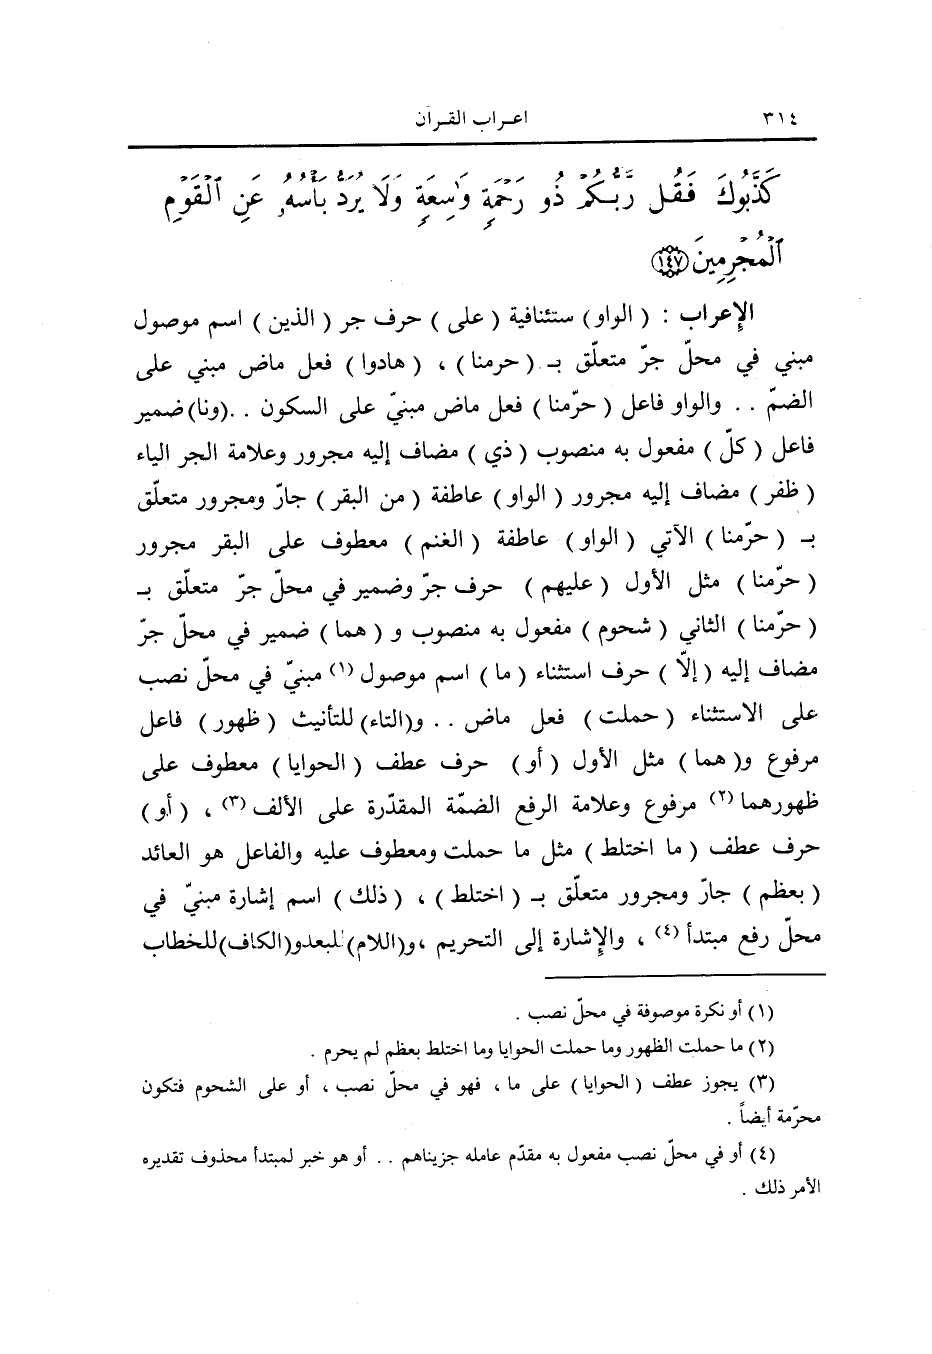 ٣١٤ اعـراب القـرآن
كَذَّبُوكَ فَقُل رَّبُّكُمْ ذُو رَحْمَةٍ وَٰسِعَةٍ وَلَا يُرَدُّ بَأْسُهُۥ عَنِ ٱلْقَوْمِ
ٱلْمُجْرِمِينَ ﴿١٤٧﴾
الإعراب : ( الواو ) ستئنافية ( على ) حرف جر ( الذين ) اسم موصول
مبني في محلّ جرّ متعلّق بـ ( حرمنا ) ، ( هادوا ) فعل ماض مبني على
الضمّ . . والواو فاعل ( حرّمنا ) فعل ماض مبنيّ على السكون . .(ونا) ضمير
فاعل ( كلّ ) مفعول به منصوب ( ذي ) مضاف إليه مجرور وعلامة الجر الياء
( ظفر ) مضاف إليه مجرور ( الواو ) عاطفة ( من البقر ) جارّ ومجرور متعلّق
بـ ( حرّمنا ) الآتي ( الواو ) عاطفة ( الغنم ) معطوف على البقر مجرور
( حرّمنا ) مثل الأول ( عليهم ) حرف جرّ وضمير في محلّ جرّ متعلّق بـ
( حرّمنا ) الثاني ( شحوم ) مفعول به منصوب و ( هما ) ضمير في محلّ جرّ
مضاف إليه ( إلّا ) حرف استثناء ( ما ) اسم موصول (١) مبنيّ في محلّ نصب
على الاستثناء ( حملت ) فعل ماض . . و(التاء) للتأنيث ( ظهور ) فاعل
مرفوع و( هما ) مثل الأول ( أو ) حرف عطف ( الحوايا ) معطوف على
ظهورهما (٢) مرفوع وعلامة الرفع الضمّة المقدّرة على الألف (٣) ، ( أو )
حرف عطف ( ما اختلط ) مثل ما حملت ومعطوف عليه والفاعل هو العائد
( بعظم ) جارّ ومجرور متعلّق بـ ( اختلط ) ، ( ذلك ) اسم إشارة مبنيّ في
محلّ رفع مبتدأ (٤) ، والإشارة إلى التحريم ،و(اللام) للبعدو(الكاف)للخطاب
(١) أو نكرة موصوفة في محلّ نصب .
(٢) ما حملت الظهور وما حملت الحوايا وما اختلط بعظم لم يحرم .
(٣) يجوز عطف ( الحوايا ) على ما ، فهو في محلّ نصب ، أو على الشحوم فتكون
محرّمة أيضاً .
(٤) أو في محلّ نصب مفعول به مقدّم عامله جزيناهم . . أو هو خبر لمبتدأ محذوف تقديره
الأمر ذلك .